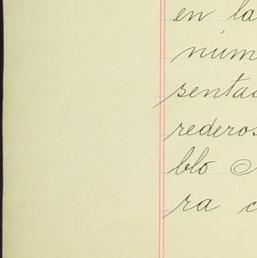 en la
núm
senta
rederos
blo
ra c